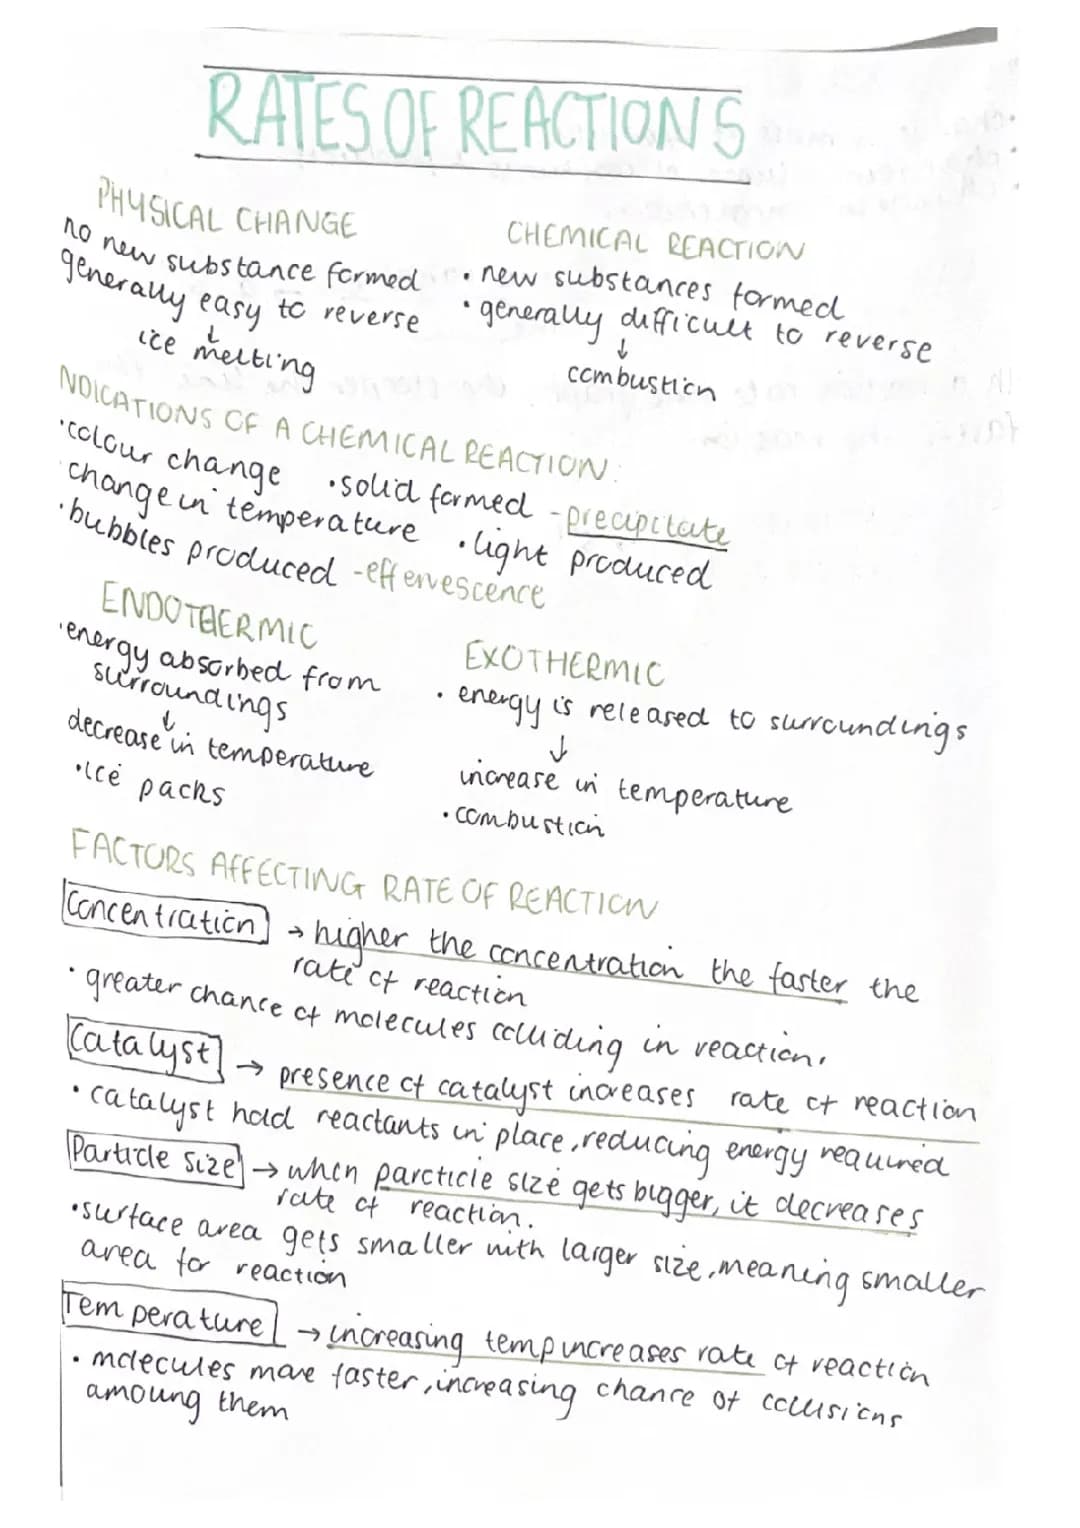 RATES OF REACTIONS
PHYSICAL CHANGE
no new substance formed
generally easy to reverse
↓
ice melting
CHEMICAL REACTION
• new substances formed
• generally difficult to reverse
↓
combustion
NDICATIONS OF A CHEMICAL REACTION:
•colour change •solid formed - precipitate
change in temperature •light produced
•bubbles produced - effervescence
ENDOTHERMIC
•energy absorbed from
surroundings
↓
decrease in temperature
•ice packs
EXOTHERMIC
• energy is released to surroundings
↓
increase in temperature
• combustion
FACTORS AFFECTING RATE OF REACTION
Concentration → higher the concentration the faster the
rate of reaction
• greater chance of molecules colliding in reaction.
Catalyst → presence of catalyst increases rate of reaction
• catalyst hold reactants in place, reducing energy required
Particle Size → when parcticle size gets bigger, it decreases
rate of reaction.
•surface area gets smaller with larger size, meaning smaller
area for reaction
Temperature → increasing temp increases rate of reaction
• molecules move faster, increasing chance of collisions
amoung them